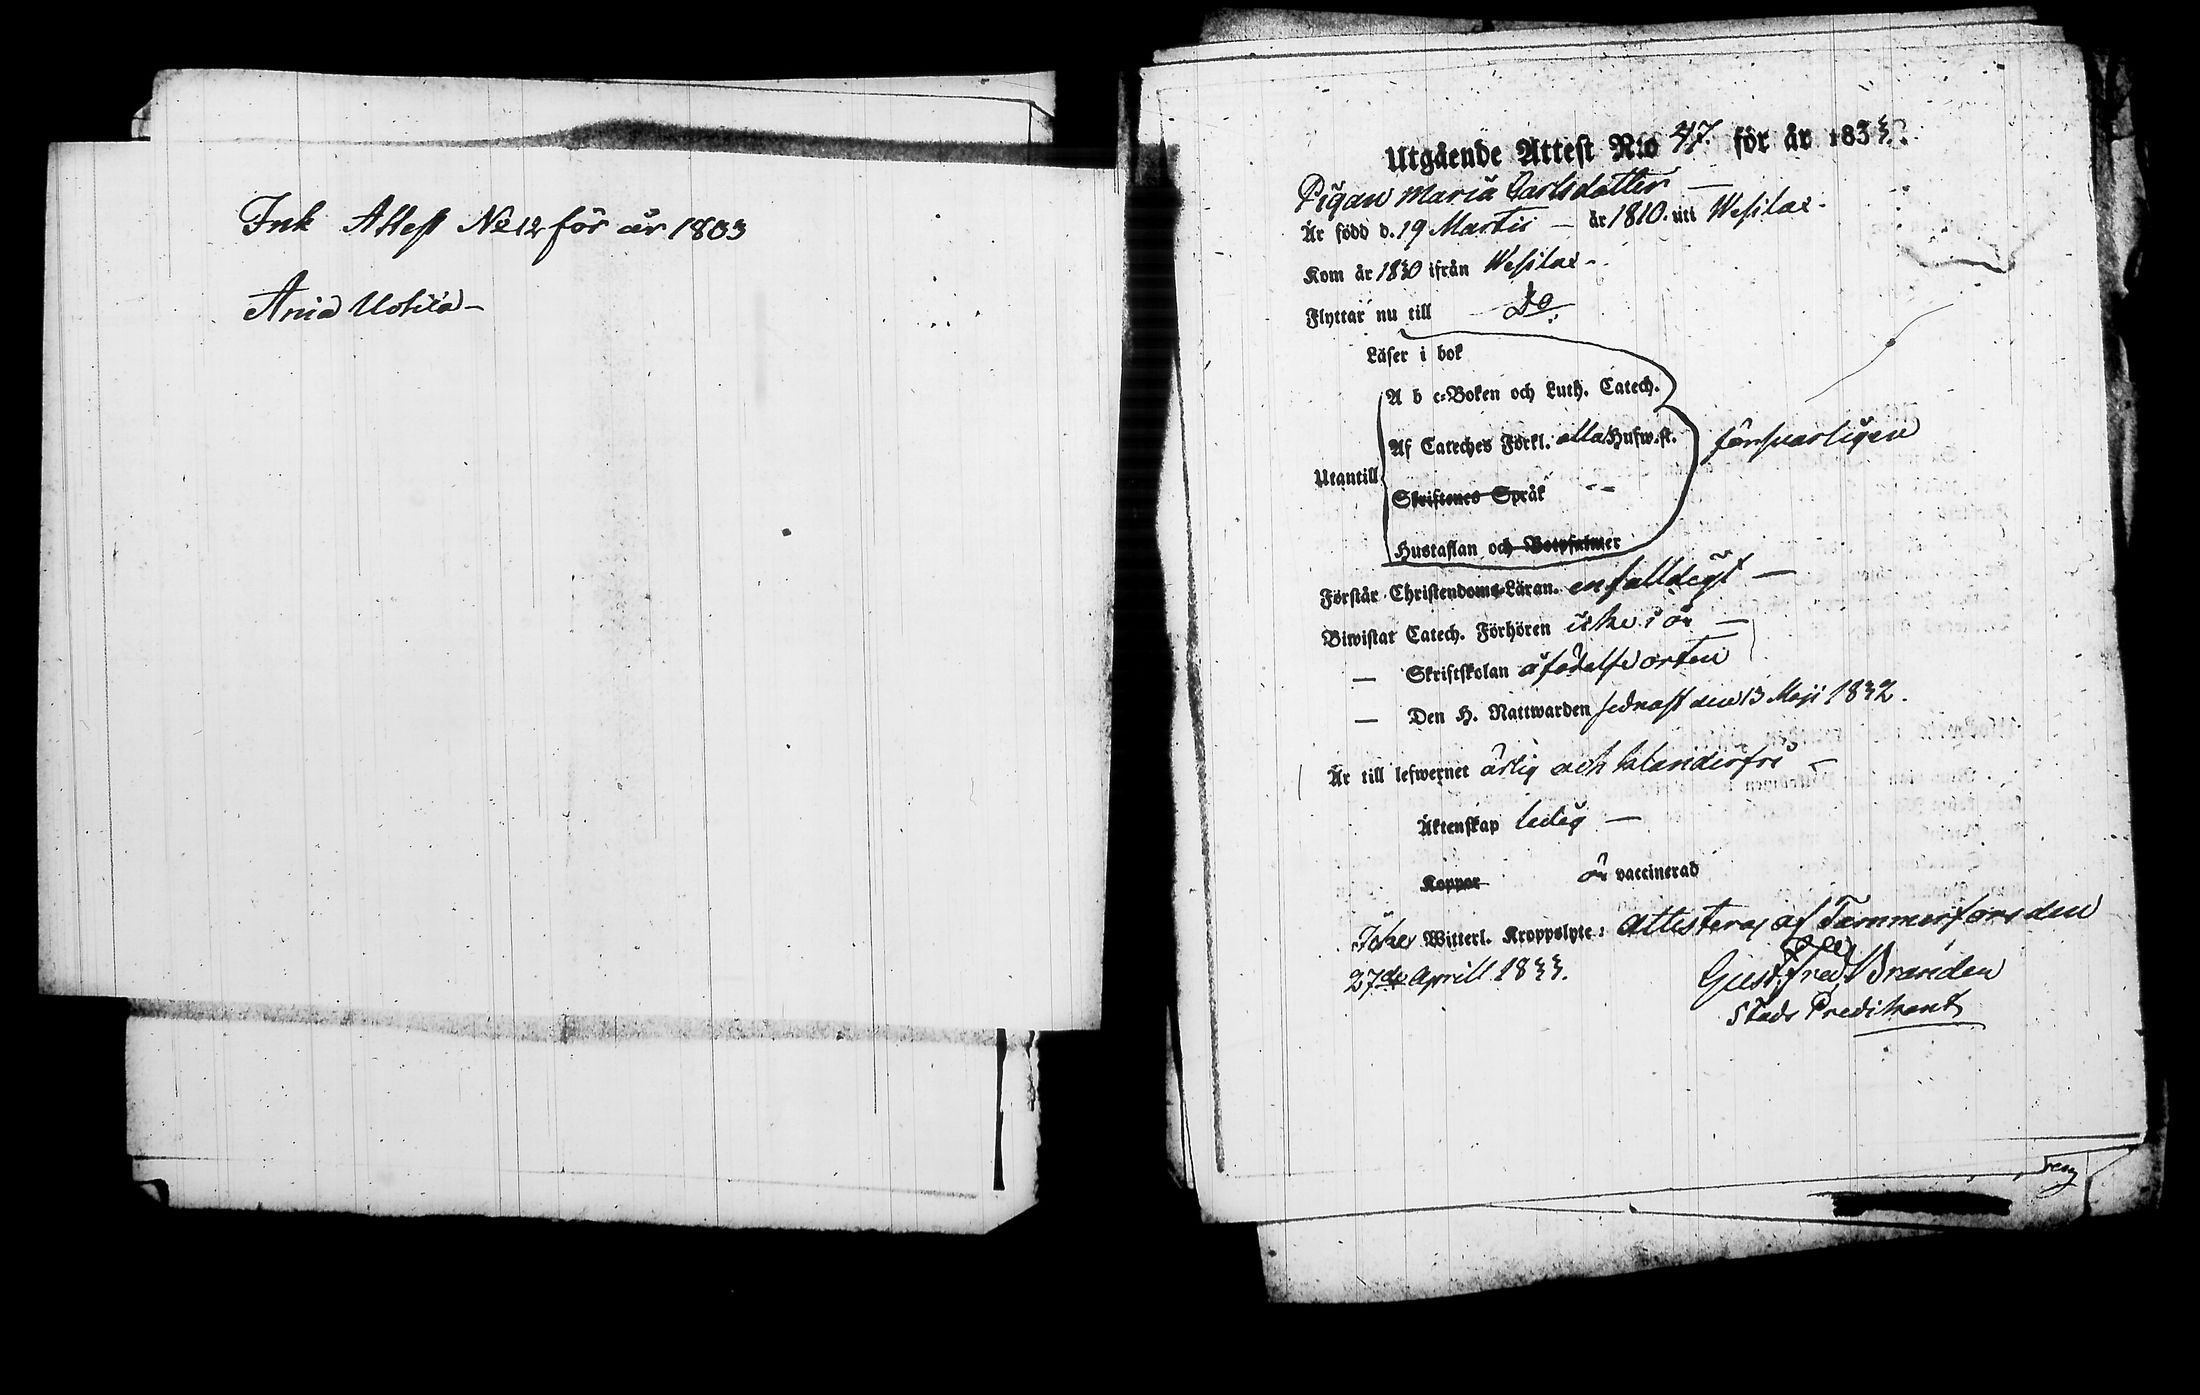 Ink Attest No 12 för år 1833
Ania Uotila -
Utgående Attest N:o 47. för år 1833.
Pigan Maria Carlsdotter —
Är född d. 19 Martii — år 1810. uti Wesilax.
Kom år 1830 ifrån Wesilax -
Flyttar nu till Do
Läser i bok
A b c-Boken och Luth. Catech.
Af Cateches Förkl. alla Hufw.st. försvarligen
Utantill
Skriftenes Språk
Hustaflan och Botpsalmer
Förstår Christendoms-Läran. enfalldigt —
Biwistat Catech. Förhören icke i år —
— Skriftskolan å födelse orten
— Den H. Nattwarden sednast den 13 Maji 1832.
Är till lefwernet ärlig och klanderfri —
Äktenskap ledig —
Koppor är vaccinerad
Icke Witterl. Kroppslyte: attesteras af Tammerfors den
27de Aprill 1833. Gust. Fred. Branden
Stads Predikant